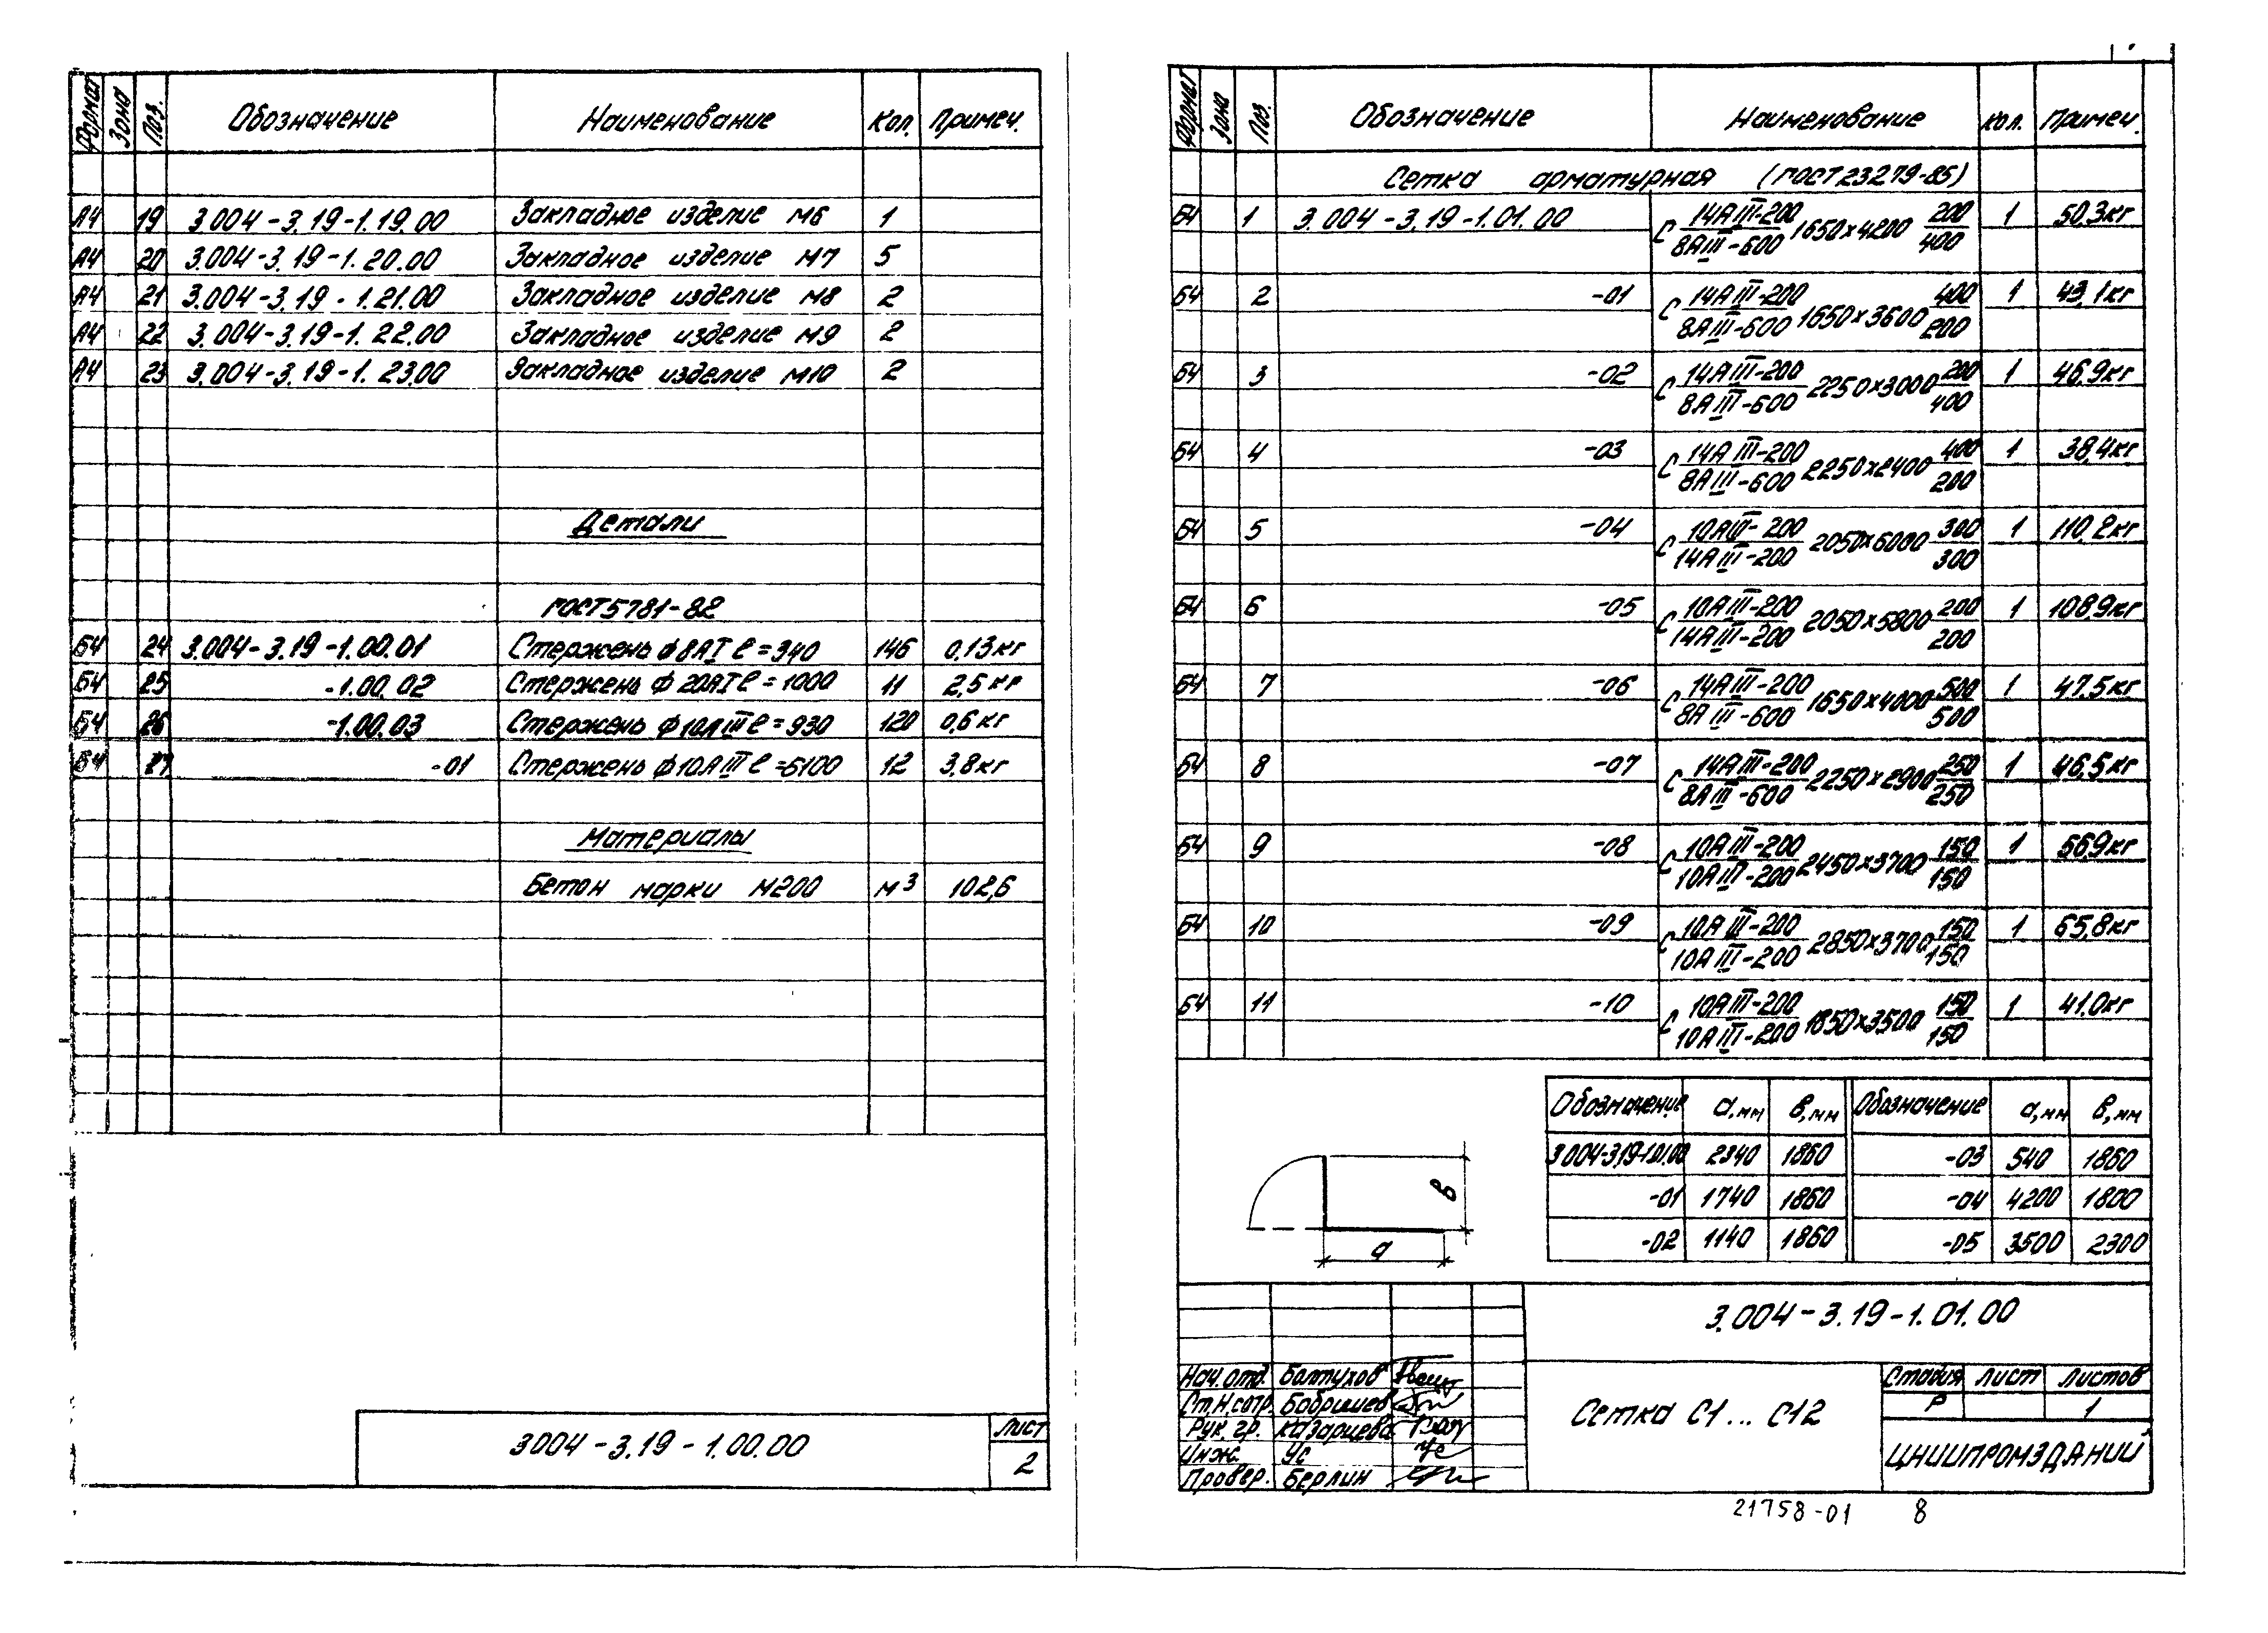 Формат Зона Поз. Обозначение Наименование Кол. Примеч.
А4 19 3.004-3.19-1.19.00 Закладное изделие М6 1
А4 20 3.004-3.19-1.20.00 Закладное изделие М7 5
А4 21 3.004-3.19-1.21.00 Закладное изделие М8 2
А4 22 3.004-3.19-1.22.00 Закладное изделие М9 2
А4 23 3.004-3.19-1.23.00 Закладное изделие М10 2
Детали
ГОСТ 5781-82
БЧ 24 3.004-3.19-1.00.01 Стержень ф8АI ℓ=340 146 0,13кг
БЧ 25 -1.00.02 Стержень ф20АI ℓ=1000 11 2,5кг
БЧ 26 -1.00.03 Стержень ф10АIII ℓ=930 120 0,6кг
БЧ 27 -01 Стержень ф10АIII ℓ=6100 12 3,8кг
Материалы
Бетон марки М200 м³ 102,6
3.004-3.19-1.00.00
Лист
2
Формат Зона Поз. Обозначение Наименование Кол. Примеч.
Сетка арматурная (ГОСТ 23279-85)
БЧ 1 3.004-3.19-1.01.00 С 14АIII-200/8АIII-600 1650×4200 200/400 1 50,3кг
БЧ 2 -01 С 14АIII-200/8АIII-600 1650×3600 400/200 1 43,1кг
БЧ 3 -02 С 14АIII-200/8АIII-600 2250×3000 200/400 1 46,9кг
БЧ 4 -03 С 14АIII-200/8АIII-600 2250×2400 400/200 1 38,4кг
БЧ 5 -04 С 10АIII-200/14АIII-200 2050×6000 300/300 1 110,2кг
БЧ 6 -05 С 10АIII-200/14АIII-200 2050×5800 200/200 1 108,9кг
БЧ 7 -06 С 14АIII-200/8АIII-600 1650×4000 500/500 1 47,5кг
БЧ 8 -07 С 14АIII-200/8АIII-600 2250×2900 250/250 1 46,5кг
БЧ 9 -08 С 10АIII-200/10АIII-200 2450×3700 150/150 1 56,9кг
БЧ 10 -09 С 10АIII-200/10АIII-200 2850×3700 150/150 1 65,8кг
БЧ 11 -10 С 10АIII-200/10АIII-200 1850×3500 150/150 1 41,0кг
Обозначение а,мм в,мм Обозначение а,мм в,мм
3.004-3.19-1.01.00 2340 1860 -03 540 1860
-01 1740 1860 -04 4200 1800
-02 1140 1860 -05 3500 2300
в
а
3.004-3.19-1.01.00
Нач.отд. Болтухов
Ст.н.сотр. Бобришев
Рук. гр. Казарцева
Инж. Ус
Провер. Берлин
Сетка С1...С12
Стадия Лист Листов
Р 1
ЦНИИПРОМЗДАНИЙ
21758-01 8